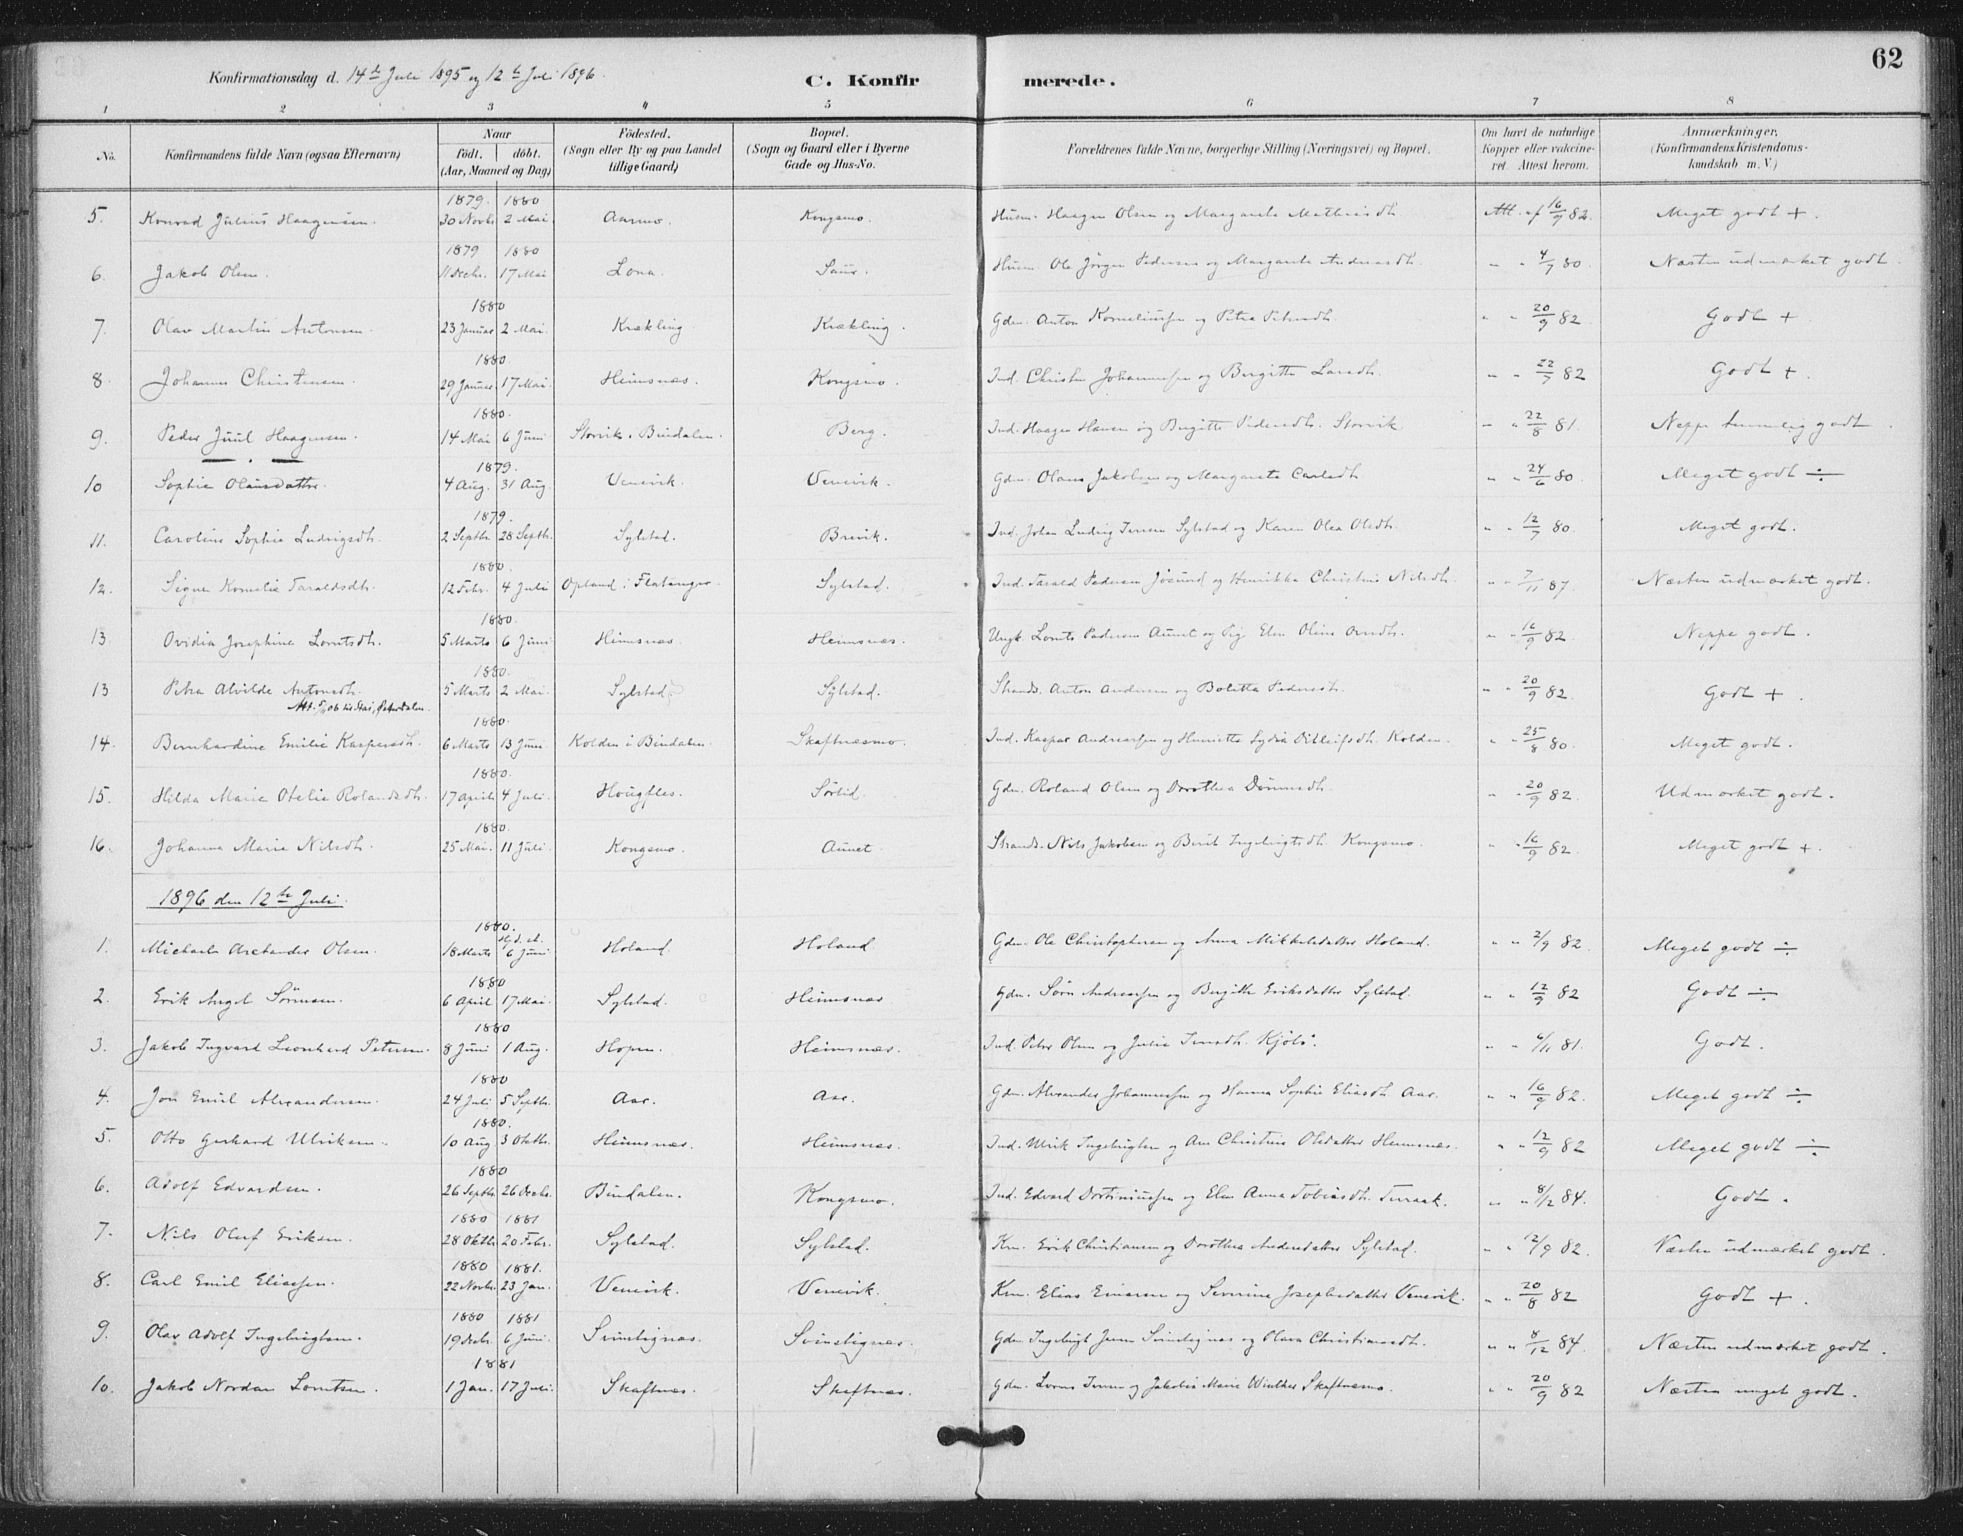 62
Konfirmationsdag d. 14de Juli 1895 og 12te Juli 1896.
C. Konfirmerede.
1 2 3 4 5 6 7 8
No. Konfirmandens fulde Navn (ogsaa Efternavn) Naar födt. döbt. (Aar, Maaned og Dag) Födested. (Sogn eller By og paa Landet tillige Gaard) Bopæl. (Sogn og Gaard eller i Byerne Gade og Hus-No. Forældrenes fulde Navne, borgerlige Stilling (Næringsvei) og Bopæl. Om havt de naturlige Kopper eller vakcineret. Attest herom. Anmærkninger. (Konfirmandens Kristendomskundskab m. V.)
1879. 1880
5. Konrad Julius Haagensen. 30 Novbr. 2 Mai Aarmo. Kongsmo. Husm. Haagen Olsen og Margarete Mathiasdtr. Att. af 16/9 82. Meget godt +.
1879 1880
6. Jakob Olsen. 11 Decbr. 17 Mai Lona. Saur. Husm. Ole Jörgen Pedersen og Margarete Andersdtr. " " 4/7 80. Næsten udmærket godt.
1880
7. Olav Martin Antonsen. 23 Januar 2 Mai. Krækling Krækling. Gdm. Anton Korneliussen og Petra Petersdtr. " " 20/9 82 Godt +
1880.
8. Johannes Christensen. 29 Januar 17 Mai. Heimsnæs. Kongsmo. Ind. Christen Johannessen og Bergitte Larsdtr. " " 22/7 82 Godt +.
1880.
9. Peder Juul Haagensen. 14 Mai 6 Juni Storvik i Bindalen. Berg. Ind. Haagen Hansen og Bergitte Pedersdtr. Storvik " " 22/8 81. Neppe temmelig godt.
1879.
10 Sophie Olausdatter. 4 Aug. 31 Aug. Vennevik. Vennevik. Gdm. Olaus Jakobsen og Margareta Carlsdtr. " " 24/6 80. Meget godt ÷
1879.
11. Caroline Sophie Ludvigsdtr. 2 Septbr. 28 Septbr. Sylstad. Brevik. Ind. Johan Ludvig Jensen Sylstad og Karen Olea Olsdtr. " " 12/7 80. Meget godt.
1880.
12. Signe Kornelie Taraldsdtr. 12 Febr. 4 Juli Opland i Flatanger. Sylstad. Ind. Tarald Pedersen Jösund og Henrikka Christine Nilsdtr. " " 7/11 87. Næsten udmærket godt.
1880.
13. Ovidia Josephine Lorntsdtr. 5 Marts 6 Juni Heimsnæs. Heimsnæs. Ungk. Lornts Pedersen Aunet og Pig. Elen Oline Arndtr. " " 16/9 82 Neppe godt.
1880.
13 Petra Alvilde Antonsdtr. 5 Marts 2 Mai. Sylstad. Sylstad. Strands. Anton Andersen og Boletta Pedersdtr. " " 20/9 82. Godt +.
1880.
14. Bernhardine Emilie Kaspersdtr. 6 Marts 13 Juni Kolden i Bindalen. Skaftnæsmo. Ind. Kaspar Andreassen og Henriette Lydia Ditlefsdtr. Kolden. " " 25/8 80. Meget godt.
1880.
15. Hilda Marie Otelie Rolandsdtr. 17 April 4 Juli. Hougfles. Sörlid. Gdm. Roland Olsen og Dorothea Dönnesdtr. " " 20/9 82. Udmærket godt.
1880.
16. Johanna Marie Nilsdtr. 25 Mai. 11 Juli. Kongsmo. Aunet Strands. Nils Jakobsen og Berit Ingebrigtsdtr. Kongsmo. " " 16/9 82. Meget godt +.
1896 den 12te Juli.
1880.
1. Michael Arctander Olsen. 18 Marts 6 Juni Holand. Holand Gdm. Ole Christophersen og Anna Mikkelsdatter Holand. " " 2/9 82 Meget godt ÷
1880
2. Erik Angel Sörensen. 6 April 17 Mai. Sylstad. Heimsnæs Gdm. Sörn Andreassen og Bergitte Eriksdatter Sylstad. " " 12/9 82 Godt ÷
1880
3. Jakob Ingvard Leonhard Petersen. 8 Juni 1 Aug. Hopen. Heimsnæs. Ind. Peter Olsen og Julie Jensdtr. Kjölö. " " 6/11 81. Godt.
1880
4. Jon Emil Alexandersen. 24 Juli 5 Septbr. Aar. Aar. Gdm. Alexander Johannessen og Hanna Sophie Eliasdtr. Aar. " " 16/9 82. Meget godt ÷
1880.
5. Otto Gerhard Ulriksen. 10 Aug. 3 Oktbr. Heimsnæs. Heimsnæs. Ind. Ulrik Ingebrigtsen og Ane Christine Olsdatter Heimsnæs. " " 12/9 82 Meget godt ÷
1880
6. Adolf Edvardsen. 26 Septbr. 26 Decbr. Bindalen. Kongsmo. Ind. Edvard Dortiniussen og Elen Anna Tobiasdtr. Terraak. " " 8/12 84. Godt.
1880 1881
7. Nils Oluf Eriksen. 28 Oktbr. 20 Febr. Sylstad. Sylstad. Km. Erik Christiansen og Dorothea Andersdatter Sylstad. " " 12/9 82. Næsten udmærket godt.
1880 1881.
8. Carl Emil Eliassen. 22 Novbr. 23 Jan. Vennevik. Vennevik. Km. Elias Einersen og Severine Josephsdatter Vennevik. " " 20/8 82 Godt +.
1880 1881
9. Olav Adolf Ingebrigtsen. 19 Decbr. 6 Juni Svinstignæs. Svinstignæs. Gdm. Ingebrigt Jensen Svinstignæs og Olava Christiansdtr. " " 8/12 84. Næsten udmærket godt.
1881
10. Jakob Nordan Lorntsen. 1 Jan. 17 Juli. Skaftnæs. Skaftnæs. Gdm. Lorns Jensen og Jakobia Marie Winther Skaftnæsmo. " " 20/9 82 Næsten meget godt.